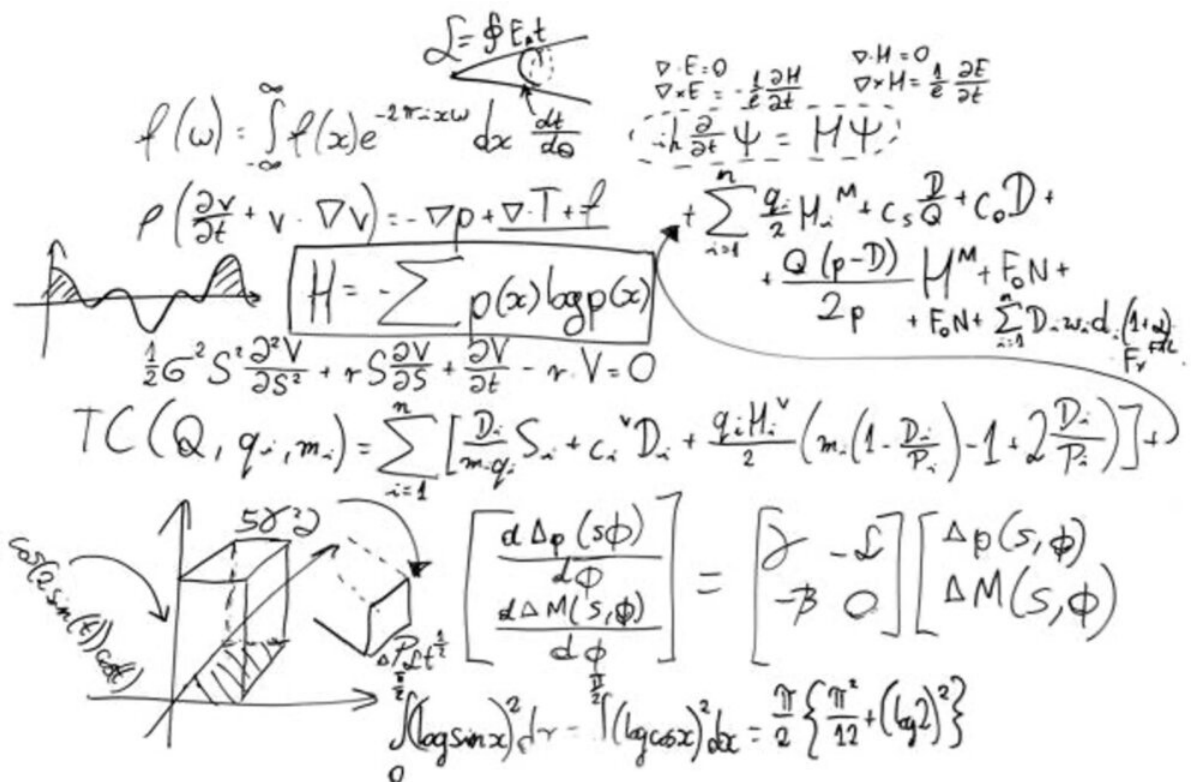 ℒ = ∮ E, t
∇·E = 0 ∇·H = 0
∇×E = -1/c ∂H/∂t ∇×H = 1/c ∂E/∂t
f(ω) = ∫_{-∞}^{∞} f(x)e^{-2πixω} dx dt/dθ
iħ ∂/∂t Ψ = HΨ
ρ(∂v/∂t + v·∇v) = -∇p + ∇·T + f
+ ∑_{i=1}^{n} q_i/2 H_i^M + c_s D/Q + c_o D +
+ Q(p-D)/2p H^M + F_o N +
H = -∑ p(x) log p(x)
+ F_o N + ∑_{i=1}^{n} D_i w_i d_i
1/2 σ² S² ∂²V/∂S² + r S ∂V/∂S + ∂V/∂t - r·V = 0
TC(Q, q_i, m_i) = ∑_{i=1}^{n} [D_i/(m_i q_i) S_i + c_i^v D_i + q_i H_i^v/2 (m_i(1 - D_i/P_i) - 1 + 2 D_i/P_i)] +
cos(2sin(x))
[dΔp(sϕ)/dϕ ; dΔM(s,ϕ)/dϕ] = [γ -ℒ ; -β 0] [Δp(s,ϕ) ; ΔM(s,ϕ)]
∫_0^{π/2} (log sin x)² dx = ∫^{π/2} (log cos x)² dx = π/2 {π²/12 + (log 2)²}